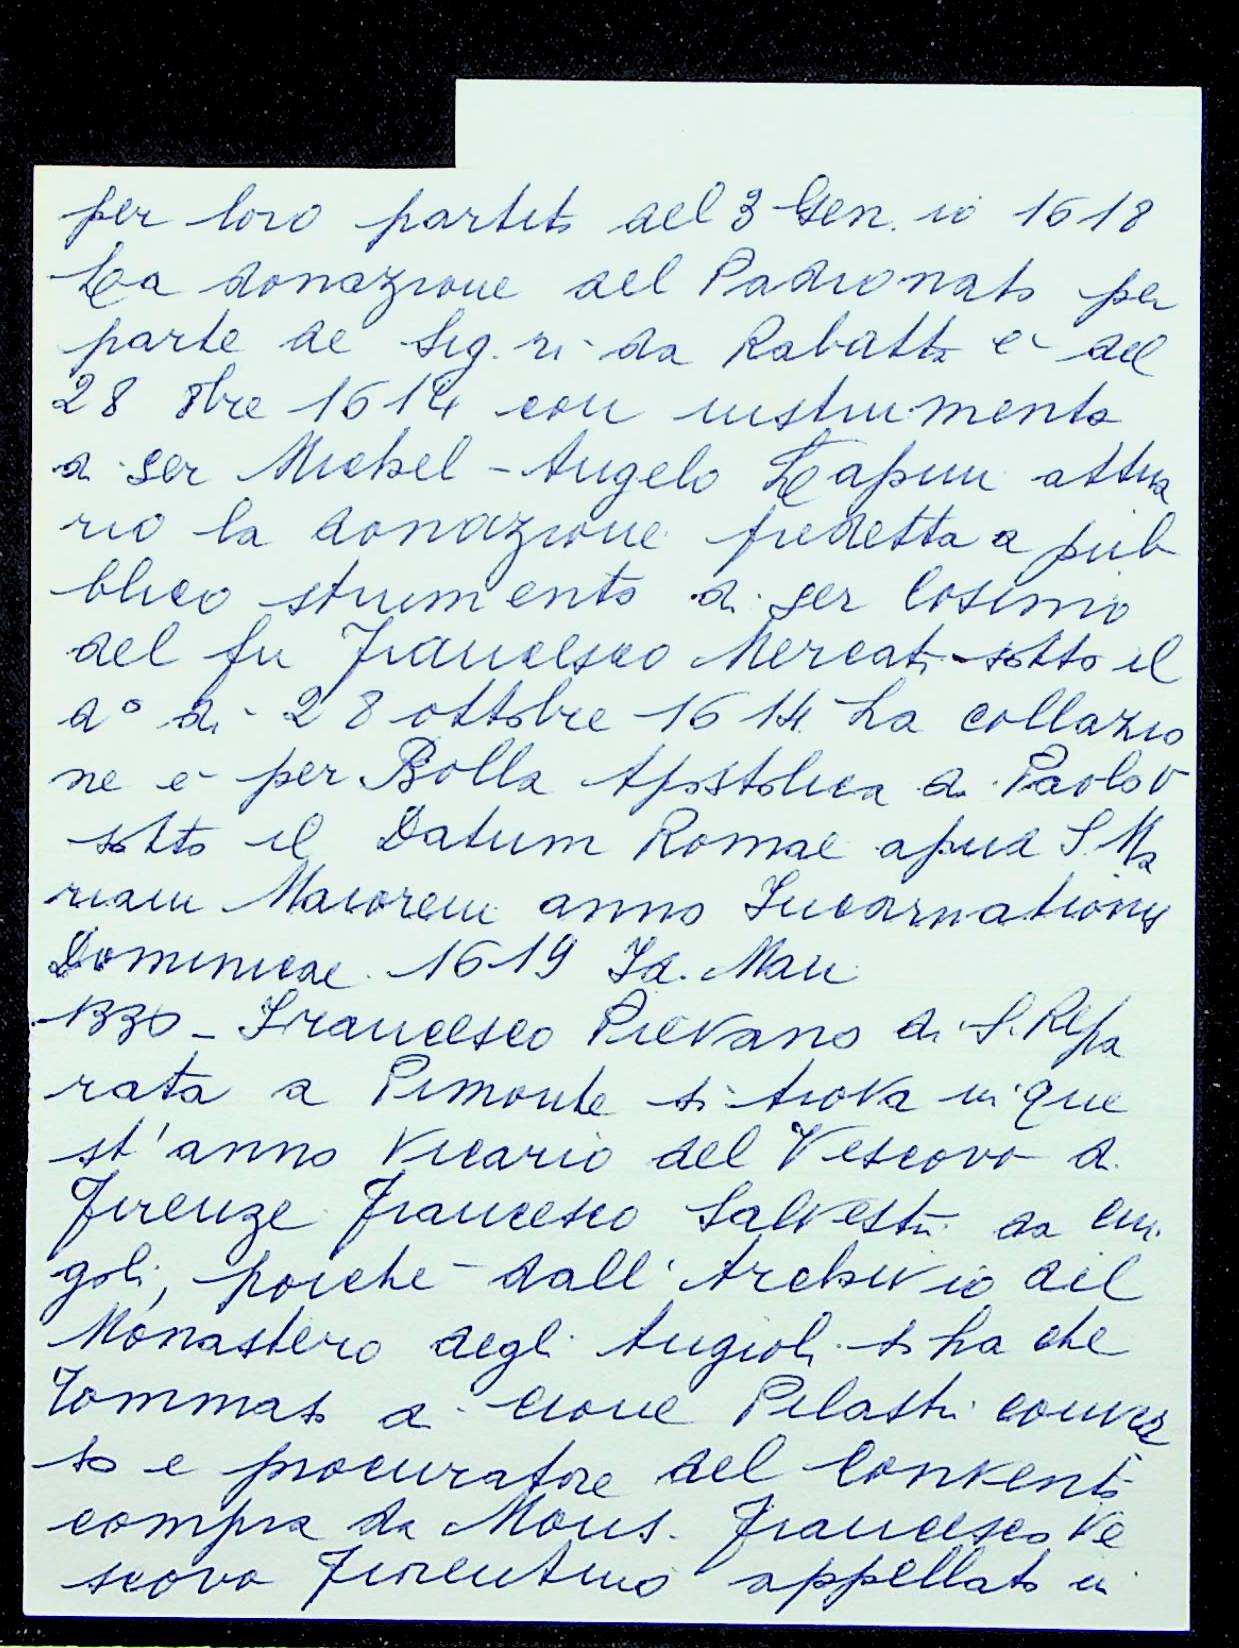 per loro partito del 3 Gen.io 1618
La donazione del Padronato per
parte de Sig.ri da Rabatta è del
28 8bre 1614 con instrumento
di ser Michel-Angelo Lapini attua
rio la donazione predetta a pub
blico strumento di ser Cosimo
del fu Francesco Mercati sotto il
d° di 28 ottobre 1614. La collazio
ne è per Bolla Apostolica di Paolo V
sotto il Datum Romae apud S. Ma
riam Maiorem anno Incarnationis
Dominicae 1619 Id. Mau
1330 - Francesco Pievano di S. Repa
rata a Pimonte si trova in que
st'anno Vicario del Vescovo di
Firenze Francesco Salvestri da Cin
goli, poiché dall'Archivio del
Monastero degli Angioli si ha che
Tommaso di Cione Pilastri conver
so e procuratore del Convento
compra da Mons. Francesco Ve
scovo Fiorentino appellato in